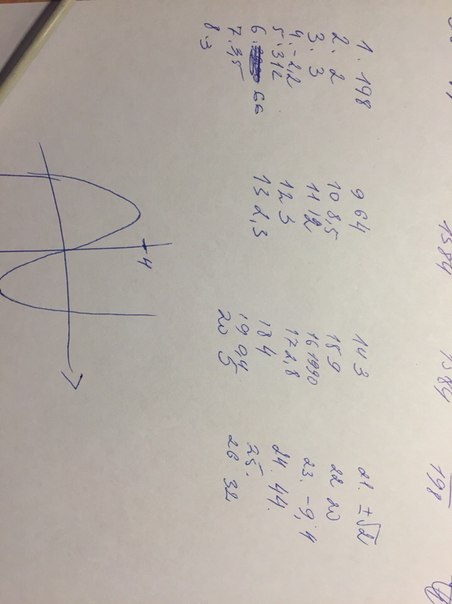 1584
1584
198
1. 198
2. 2
3. 3
4. -2,2
5. 312
6. 66
7. 3,5
8. 3
9 64
10 8,5
11 12
12 3
13 2,3
14 3
15 9
16 1990
17 2,8
18 4
19 94
20 5
21. ±√2
22 20
23. -9,4
24. 44.
25.
26 32
4